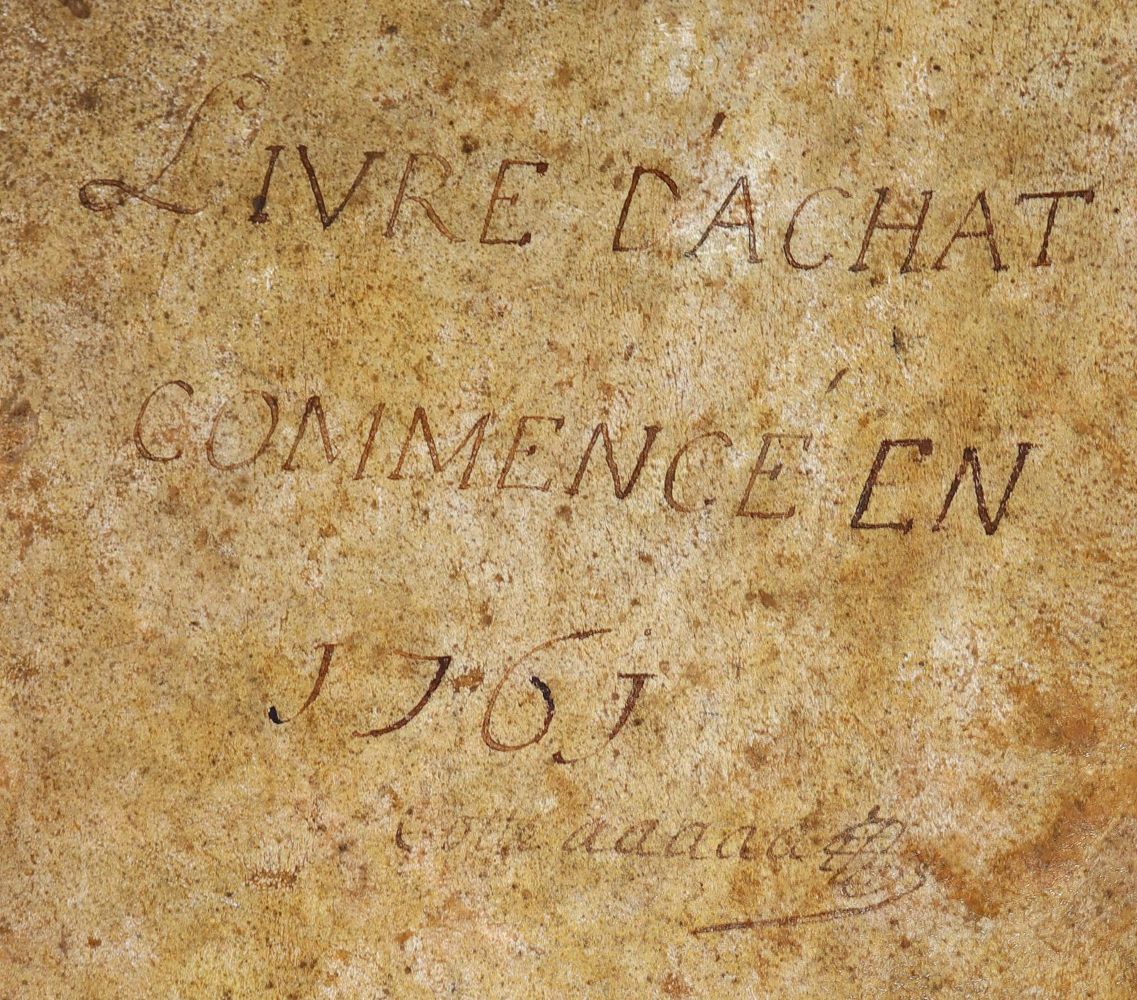 LIVRE D'ACHAT
COMMENCÉ EN
1761
Cotte aaaaa